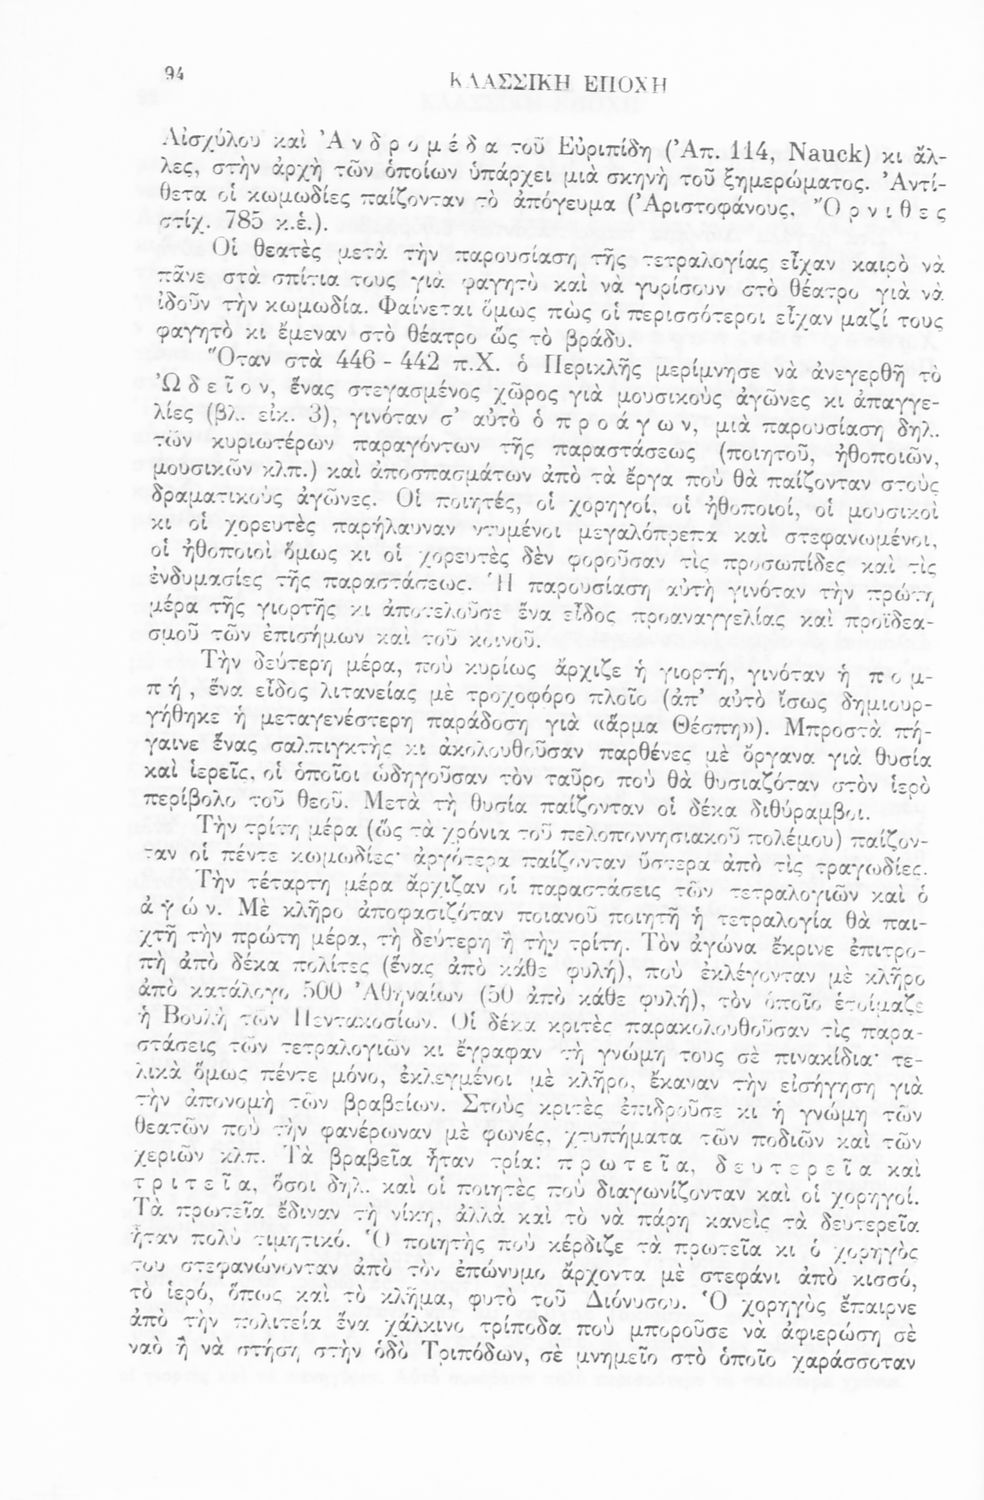 94
ΚΛΑΣΣΙΚΗ ΕΠΟΧΗ
Αἰσχύλου καὶ Ἀ ν δ ρ ο μ έ δ α τοῦ Εὐριπίδη (Ἀπ. 114, Nauck) κι ἄλ-
λες, στὴν ἀρχὴ τῶν ὁποίων ὑπάρχει μιὰ σκηνὴ τοῦ ξημερώματος. Ἀντί-
θετα οἱ κωμωδίες παίζονταν τὸ ἀπόγευμα (Ἀριστοφάνους, Ὄ ρ ν ι θ ε ς
στίχ. 785 κ.ἑ.).
Οἱ θεατὲς μετὰ τὴν παρουσίαση τῆς τετραλογίας εἶχαν καιρὸ νὰ
πᾶνε στὰ σπίτια τους γιὰ φαγητὸ καὶ νὰ γυρίσουν στὸ θέατρο γιὰ νὰ
ἰδοῦν τὴν κωμωδία. Φαίνεται ὅμως πὼς οἱ περισσότεροι εἶχαν μαζί τους
φαγητὸ κι ἔμεναν στὸ θέατρο ὣς τὸ βράδυ.
Ὅταν στὰ 446 - 442 π.Χ. ὁ Περικλῆς μερίμνησε νὰ ἀνεγερθῆ τὸ
Ὠ δ ε ῖ ο ν, ἕνας στεγασμένος χῶρος γιὰ μουσικοὺς ἀγῶνες κι ἀπαγγε-
λίες (βλ. εἰκ. 3), γινόταν σ' αὐτὸ ὁ π ρ ο ά γ ω ν, μιὰ παρουσίαση δηλ.
τῶν κυριωτέρων παραγόντων τῆς παραστάσεως (ποιητοῦ, ἠθοποιῶν,
μουσικῶν κλπ.) καὶ ἀποσπασμάτων ἀπὸ τὰ ἔργα ποὺ θὰ παίζονταν στοὺς
δραματικοὺς ἀγῶνες. Οἱ ποιητές, οἱ χορηγοί, οἱ ἠθοποιοί, οἱ μουσικοὶ
κι οἱ χορευτὲς παρήλαυναν ντυμένοι μεγαλόπρεπα καὶ στεφανωμένοι,
οἱ ἠθοποιοὶ ὅμως κι οἱ χορευτὲς δὲν φοροῦσαν τὶς προσωπίδες καὶ τὶς
ἐνδυμασίες τῆς παραστάσεως. Ἡ παρουσίαση αὐτὴ γινόταν τὴν πρώτη
μέρα τῆς γιορτῆς κι ἀποτελοῦσε ἕνα εἶδος προαναγγελίας καὶ προϊδεα-
σμοῦ τῶν ἐπισήμων καὶ τοῦ κοινοῦ.
Τὴν δεύτερη μέρα, ποὺ κυρίως ἄρχιζε ἡ γιορτή, γινόταν ἡ π ο μ-
π ή , ἕνα εἶδος λιτανείας μὲ τροχοφόρο πλοῖο (ἀπ' αὐτὸ ἴσως δημιουρ-
γήθηκε ἡ μεταγενέστερη παράδοση γιὰ «ἅρμα Θέσπη»). Μπροστὰ πή-
γαινε ἕνας σαλπιγκτὴς κι ἀκολουθοῦσαν παρθένες μὲ ὄργανα γιὰ θυσία
καὶ ἱερεῖς, οἱ ὁποῖοι ὡδηγοῦσαν τὸν ταῦρο ποὺ θὰ θυσιαζόταν στὸν ἱερὸ
περίβολο τοῦ θεοῦ. Μετὰ τὴ θυσία παίζονταν οἱ δέκα διθύραμβοι.
Τὴν τρίτη μέρα (ὣς τὰ χρόνια τοῦ πελοποννησιακοῦ πολέμου) παίζον-
ταν οἱ πέντε κωμωδίες· ἀργότερα παίζονταν ὕστερα ἀπὸ τὶς τραγωδίες.
Τὴν τέταρτη μέρα ἄρχιζαν οἱ παραστάσεις τῶν τετραλογιῶν καὶ ὁ
ἀ γ ώ ν. Μὲ κλῆρο ἀποφασιζόταν ποιανοῦ ποιητῆ ἡ τετραλογία θὰ παι-
χτῆ τὴν πρώτη μέρα, τὴ δεύτερη ἢ τὴν τρίτη. Τὸν ἀγώνα ἔκρινε ἐπιτρο-
πὴ ἀπὸ δέκα πολίτες (ἕνας ἀπὸ κάθε φυλή), ποὺ ἐκλέγονταν μὲ κλῆρο
ἀπὸ κατάλογο 500 Ἀθηναίων (50 ἀπὸ κάθε φυλή), τὸν ὁποῖο ἑτοίμαζε
ἡ Βουλὴ τῶν Πεντακοσίων. Οἱ δέκα κριτὲς παρακολουθοῦσαν τὶς παρα-
στάσεις τῶν τετραλογιῶν κι ἔγραφαν τὴ γνώμη τους σὲ πινακίδια· τε-
λικὰ ὅμως πέντε μόνο, ἐκλεγμένοι μὲ κλῆρο, ἔκαναν τὴν εἰσήγηση γιὰ
τὴν ἀπονομὴ τῶν βραβείων. Στοὺς κριτὲς ἐπιδροῦσε κι ἡ γνώμη τῶν
θεατῶν ποὺ τὴν φανέρωναν μὲ φωνές, χτυπήματα τῶν ποδιῶν καὶ τῶν
χεριῶν κλπ. Τὰ βραβεῖα ἦταν τρία: π ρ ω τ ε ῖ α, δ ε υ τ ε ρ ε ῖ α καὶ
τ ρ ι τ ε ῖ α, ὅσοι δηλ. καὶ οἱ ποιητὲς ποὺ διαγωνίζονταν καὶ οἱ χορηγοί.
Τὰ πρωτεῖα ἔδιναν τὴ νίκη, ἀλλὰ καὶ τὸ νὰ πάρη κανεὶς τὰ δευτερεῖα
ἦταν πολὺ τιμητικό. Ὁ ποιητὴς ποὺ κέρδιζε τὰ πρωτεῖα κι ὁ χορηγὸς
του στεφανώνονταν ἀπὸ τὸν ἐπώνυμο ἄρχοντα μὲ στεφάνι ἀπὸ κισσό,
τὸ ἱερό, ὅπως καὶ τὸ κλῆμα, φυτὸ τοῦ Διόνυσου. Ὁ χορηγὸς ἔπαιρνε
ἀπὸ τὴν πολιτεία ἕνα χάλκινο τρίποδα ποὺ μποροῦσε νὰ ἀφιερώση σὲ
ναὸ ἢ νὰ στήση στὴν ὁδὸ Τριπόδων, σὲ μνημεῖο στὸ ὁποῖο χαράσσοταν